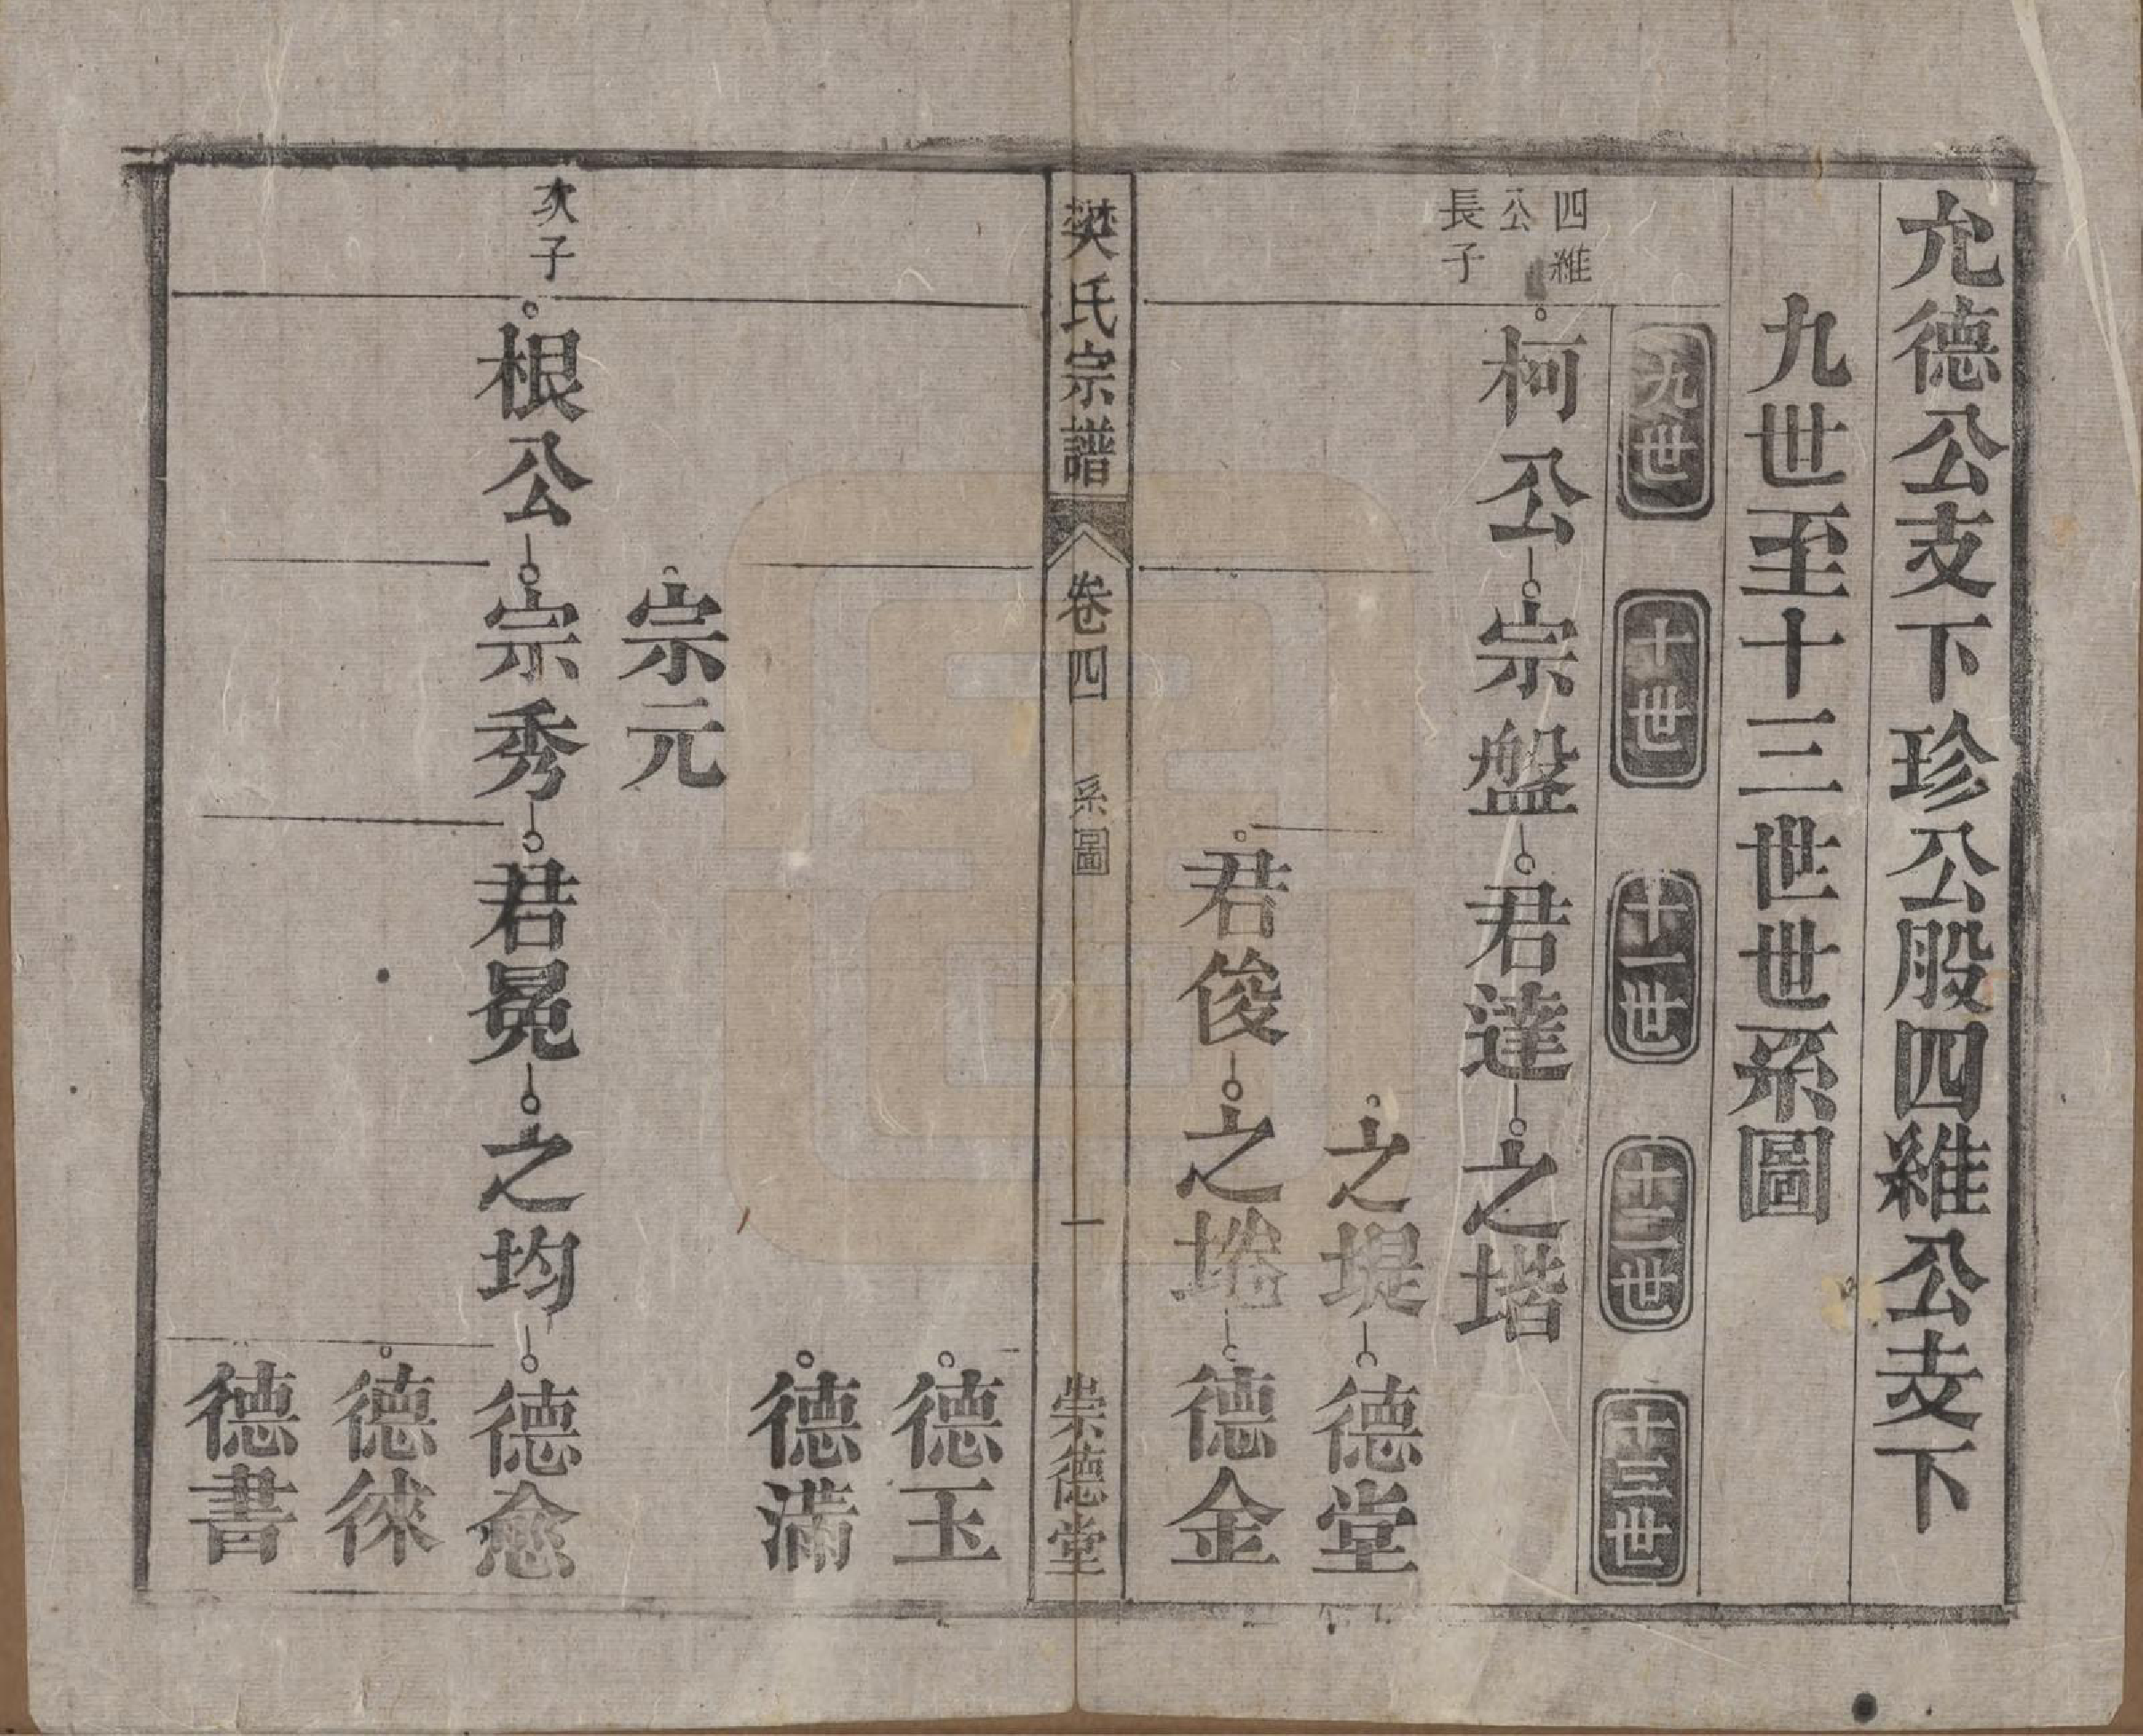 允德公支下珍公股四維公支下
九世至十三世世系圖
九世
十世
十一世
十二世
十三世
四維
公
長子
柯公
宗盤
君達
之堦
之堤
德堂
君俊
之埢
德金
樊氏宗譜
卷四
系圖
一
崇德堂
德玉
德滿
宗元
次子
根公
宗秀
君冕
之均
德愈
德徠
德書